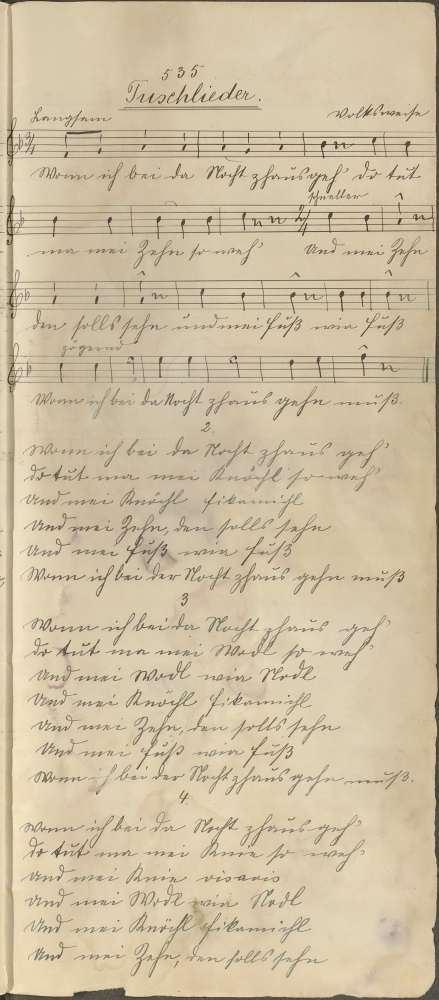 535
Tuschlieder.
Langsam Volksweise
Wonn ich bei da Nocht zhaus geh' do tut
schneller
ma mei Zehn so weh' Und mei Zehn
den solls sehn und mei Fuß wia Fuß
zögernd
Wonn ich bei da Nocht zhaus gehn muß.
2.
Wonn ich bei da Nocht zhaus geh'
do tut ma mei Knöchl so weh'
Und mei Knöchl Fikamichl
Und mei Zehn, den solls sehn
Und mei Fuß wia Fuß
Wonn ich bei der Nocht zhaus gehn muß
3
Wonn ich bei da Nocht zhaus geh'
do tut ma mei Wodl so weh'
Und mei Wodl wia Nodl
Und mei Knöchl Fikamichl
Und mei Zehn, den solls sehn
Und mei Fuß wia Fuß
Wonn ich bei der Nocht zhaus gehn muß.
4.
Wonn ich bei da Nocht zhaus geh'
do tut ma mei Knie so weh'
Und mei Knie visavis
Und mei Wodl wia Nodl
Und mei Knöchl Fikamichl
Und mei Zehn, den solls sehn